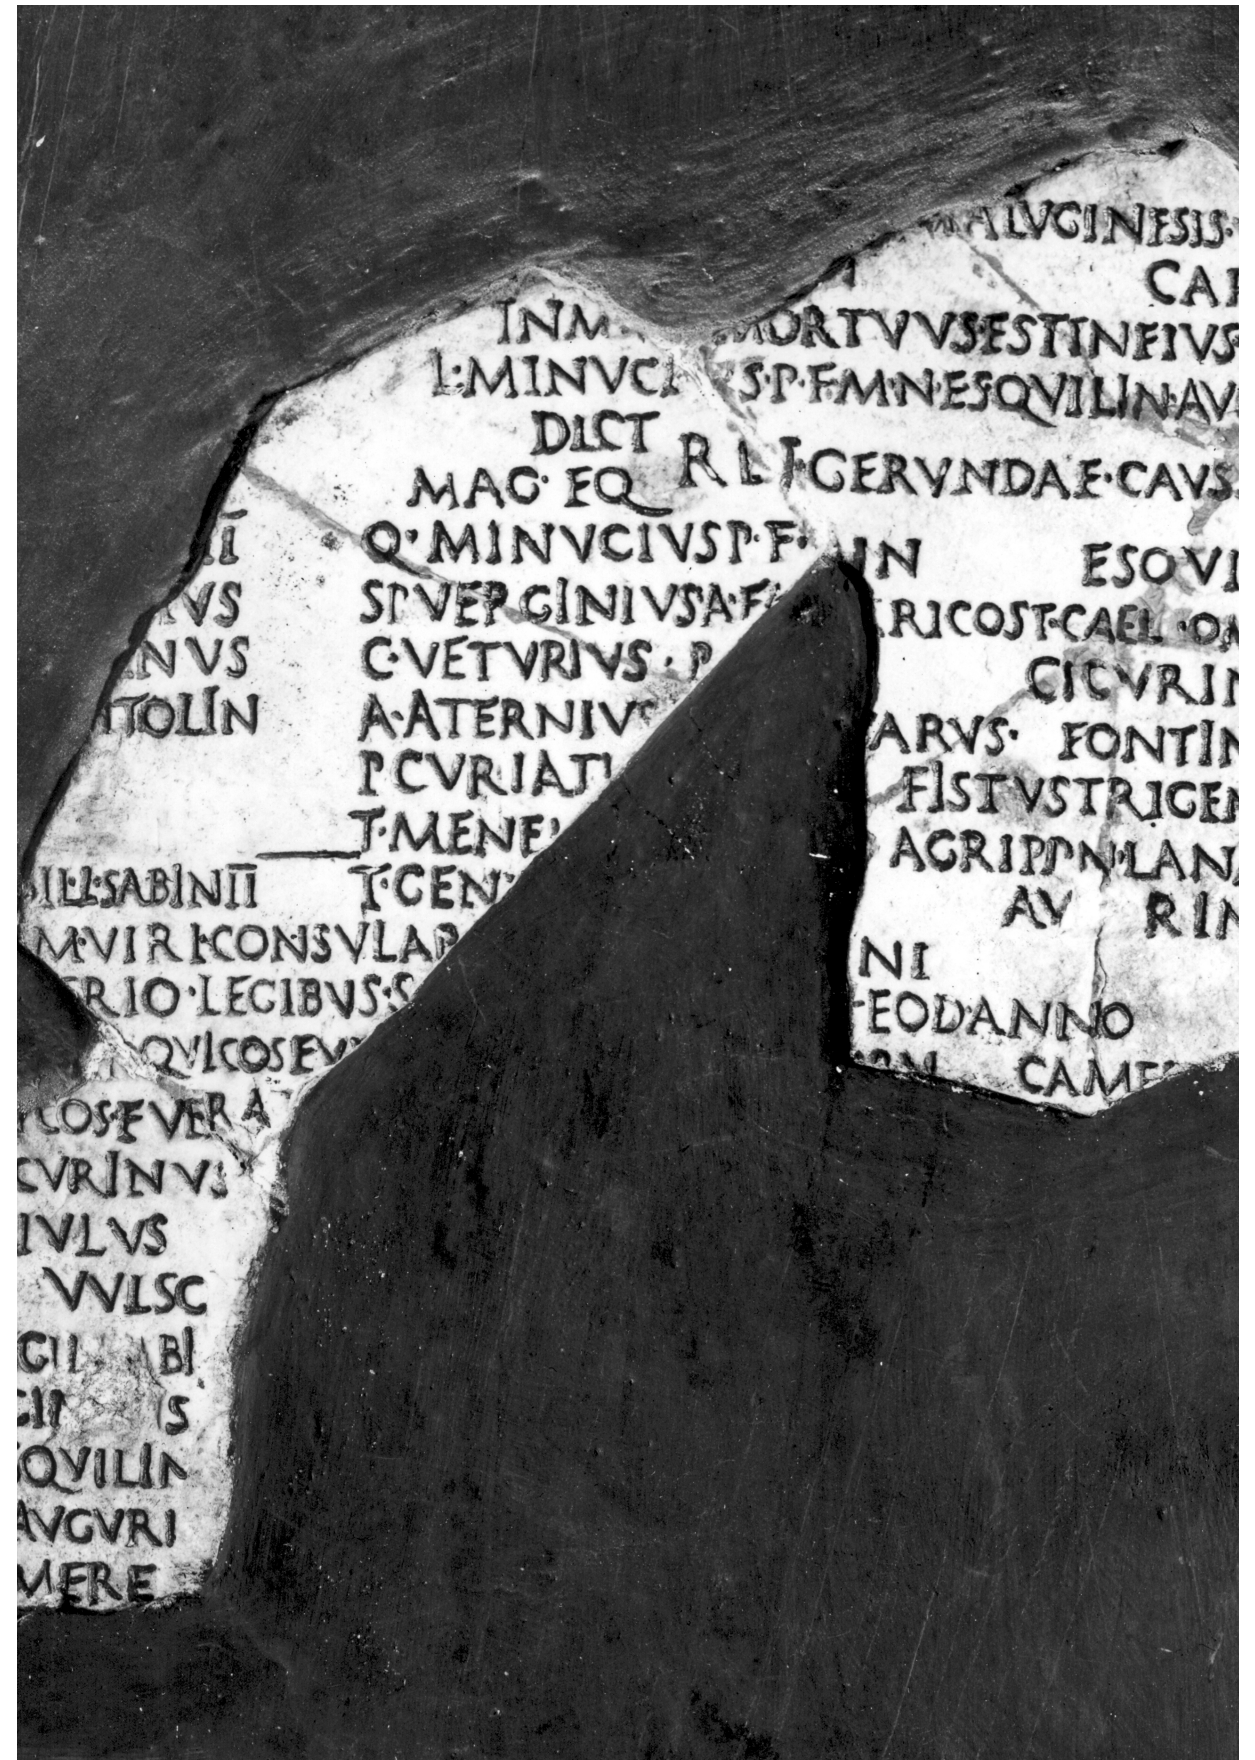 ALVGINESIS
INM MORTVVS·EST·IN·EIVS
L·MINVCI S·P·F·M·N·ESQVILIN·AV
DICT
MAG·EQ R L F·GERVNDAE·CAVS
Q·MINVCIVS·P·F· N ESQVI
VS SP·VERGINIVS·A·F RICOST·CAEL·OM
NVS C·VETVRIVS·P CICVRIN
ITOLIN A·ATERNIV ARVS· FONTIN
P·CVRIATI FISTVS·TRIGEM
T·MENE AGRIPP·N·LANA
IL·L·SABINII T·GEN AV RIN
M·VIRI·CONSVLAR NI
ERIO·LEGIBVS·S EOD·ANNO
QVI·COS·F CAMER
COS·FVERA
CVRINVS
IVLVS
VVLSC
QVILIN
AVGVRI
MERE